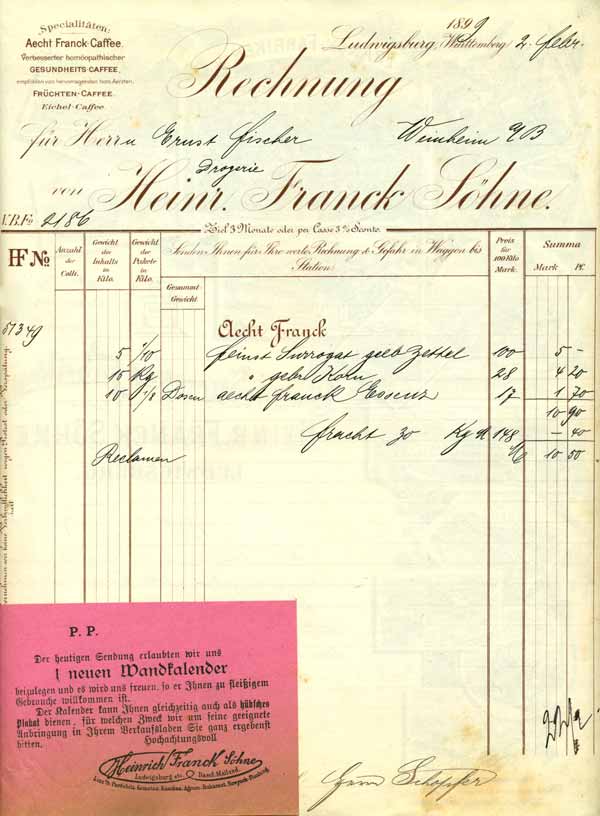 Specialitäten:
Aecht Franck-Caffee.
Verbesserter homöopathischer
GESUNDHEITS-CAFFEE,
empfohlen von hervorragenden hom. Aerzten.
FRÜCHTEN-CAFFEE.
Eichel-Caffee.
Ludwigsburg, Württemberg 2. Febr. 1899
Rechnung
für Herrn Ernst Fischer Weinheim
Drogerie
von Heinr. Franck Söhne.
2186
Ziel 3 Monate oder per Casse 3% Sconto.
HF No
Anzahl der Colli.
Gewicht des Inhalts in Kilo.
Gewicht der Pakete in Kilo.
Senden Ihnen für Ihre werte Rechnung & Gefahr in Waggon bis
Station:
Gesammt Gewicht
Preis für 100 Kilo Mark.
Summa
Mark Pf.
51349
Aecht Franck
5 1/10 feinst Surrogat gelb Zettel 100 5 -
15 Kg " gebr Korn 28 4 20
10 Dosen aecht Franck Essenz 17 1 70
10 90
Fracht 30 Kg 148 - 40
Reclamen 10 50
P. P.
Der heutigen Sendung erlaubten wir uns
1 neuen Wandkalender
beizulegen und es wird uns freuen, so er Ihnen zu fleißigem
Gebrauche willkommen ist.
Der Kalender kann Ihnen gleichzeitig auch als hübsches
Plakat dienen, für welchen Zweck wir um seine geeignete
Anbringung in Ihrem Verkaufsladen Sie ganz ergebenst
bitten.
Hochachtungsvoll
Heinrich Franck Söhne
Ludwigsburg etc. Basel, Mailand.